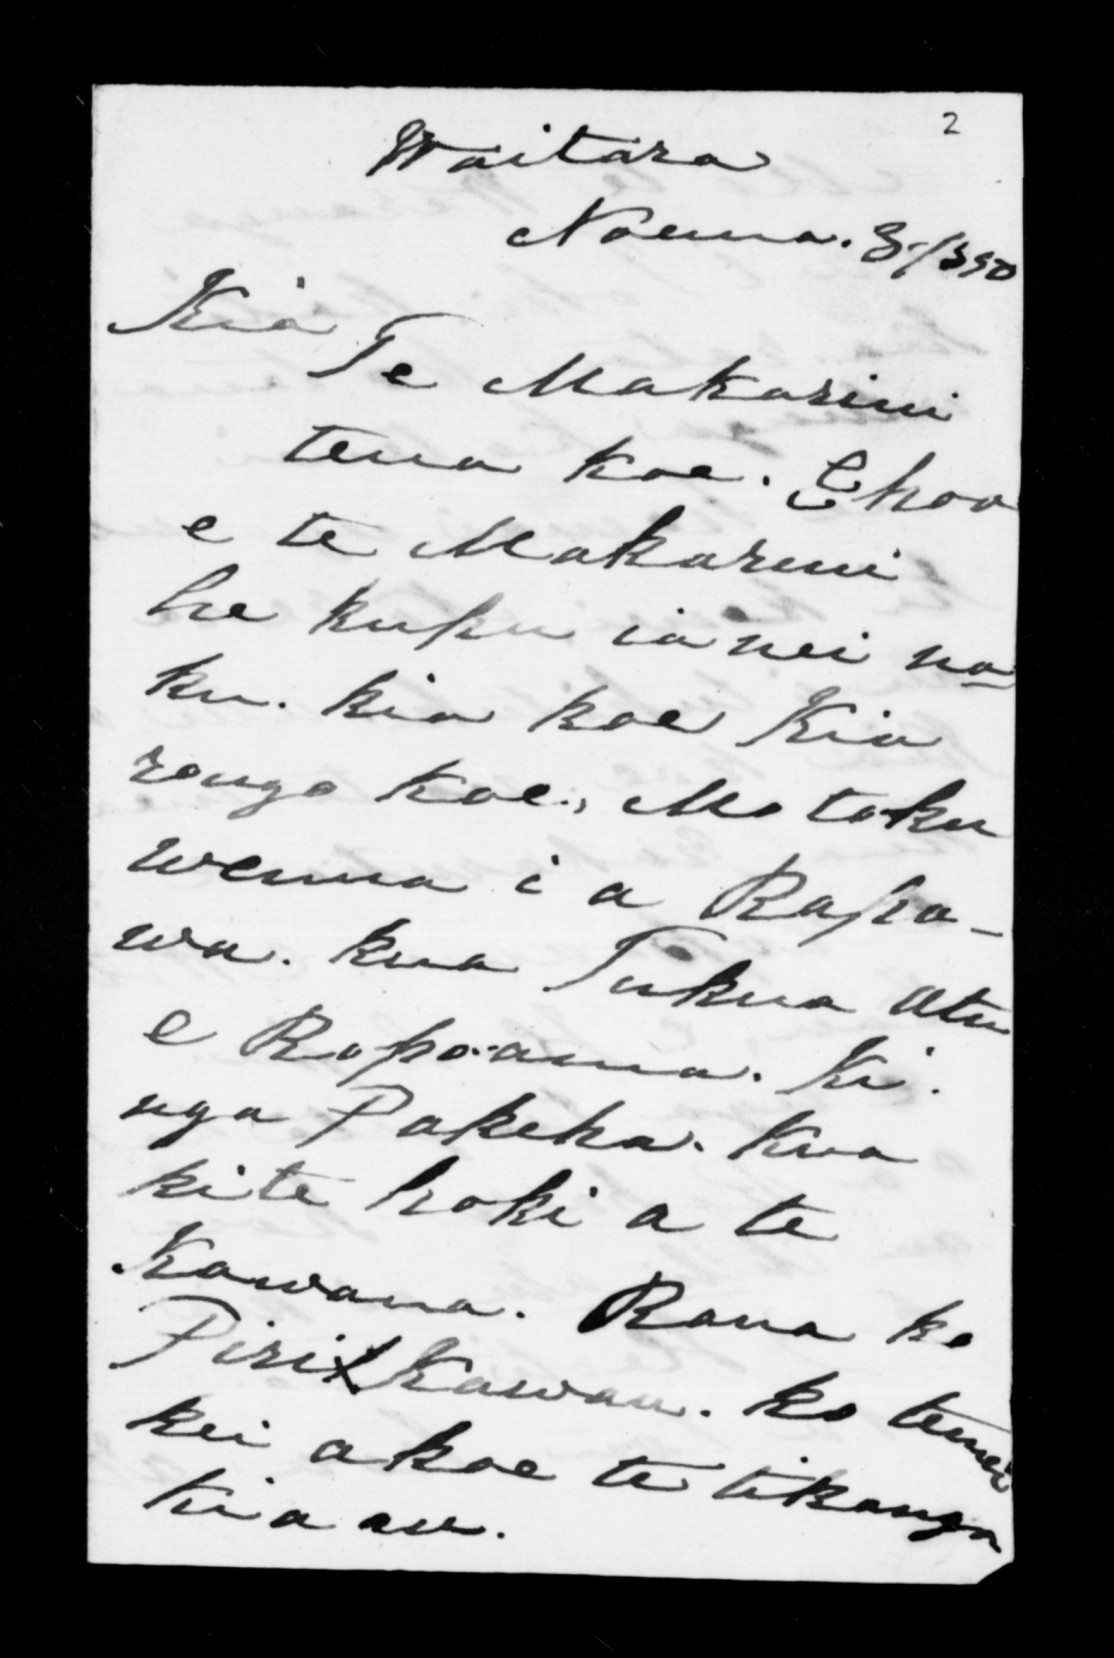 2
Waitara
Noema. 3/
Kia
Te Makarini
tena koe. Ehoa
e te Makarini
he kupu ia nei na
ku. kia koe Kia
rongo koe, Mo toku
wenua i a Rapa-
wa. kua Tukua atu
e Ropoama. Ki.
nga Pakeha. Kua
kite hoki a te
Kawana. Raua ko
Piri Kawau. ko tenei
kei a koe te tikanga
Kia au.